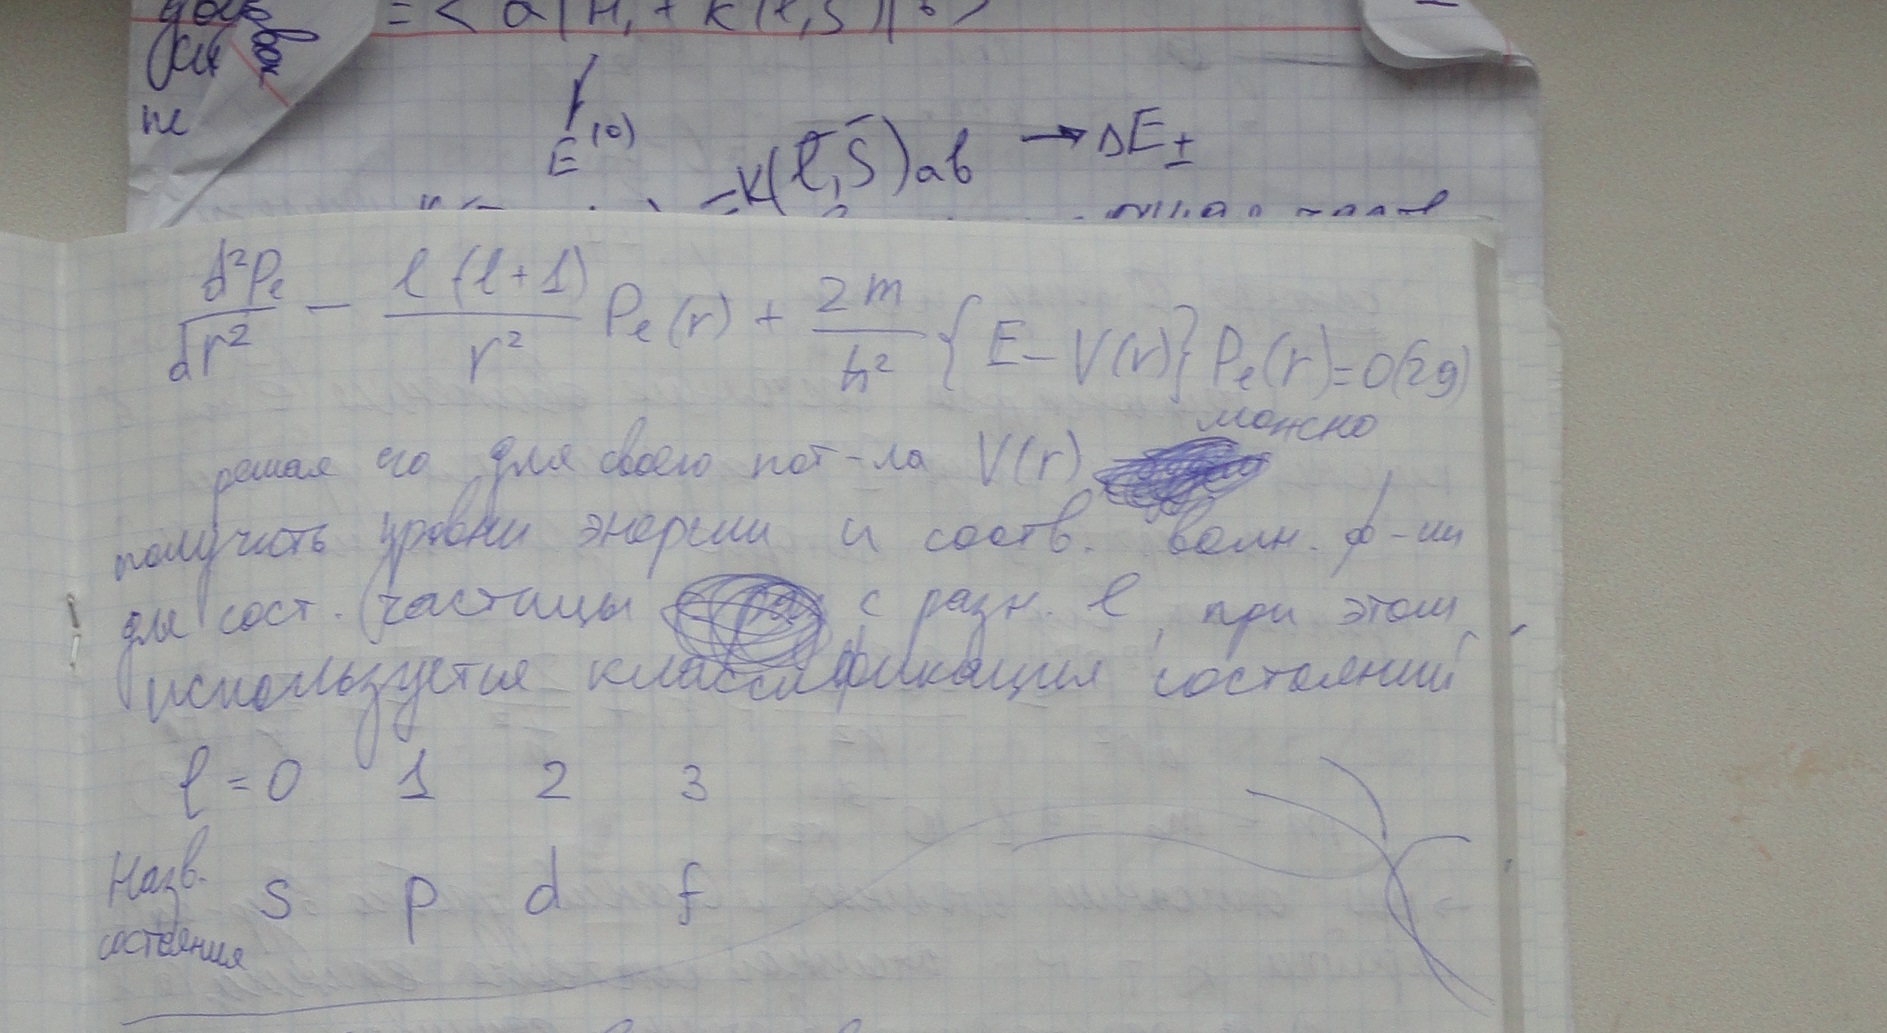 = < a | H₁ + K(l,S) | b >
не
E⁽⁰⁾
=K(l̄,S̄)ab → ΔE±
d²Pₑ/dr² − l(l+1)/r² Pₑ(r) + 2m/ħ² {E − V(r)} Pₑ(r) = 0 (29)
можно
решая его для своего пот-ла V(r)
получить уровни энергии и соотв. волн. ф-ии
для сост. частицы с разн. l, при этом
используется классификация состояний
l = 0 1 2 3
Назв. s p d f
состояния